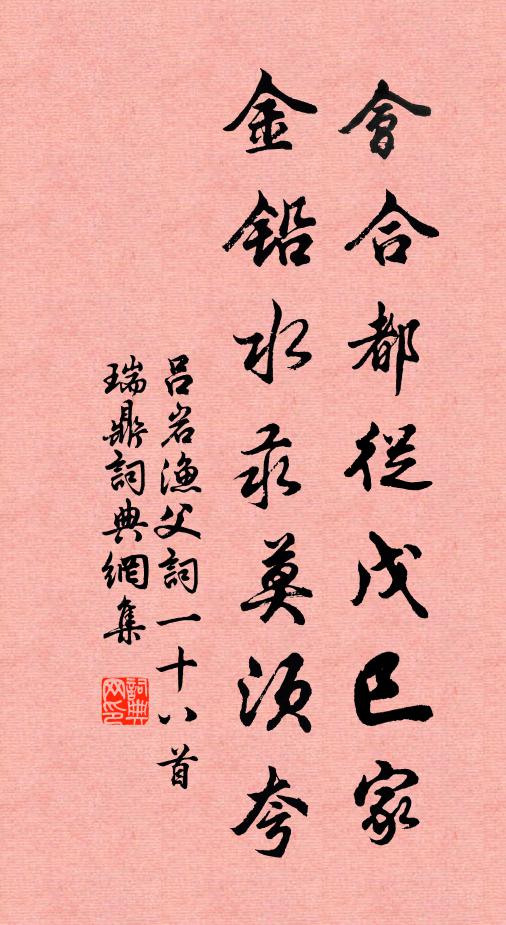 會合都從戊巳家
金鉛水汞莫須夸
呂岩漁父詞一十八首
瑞鼎詞典網集
詞典网印